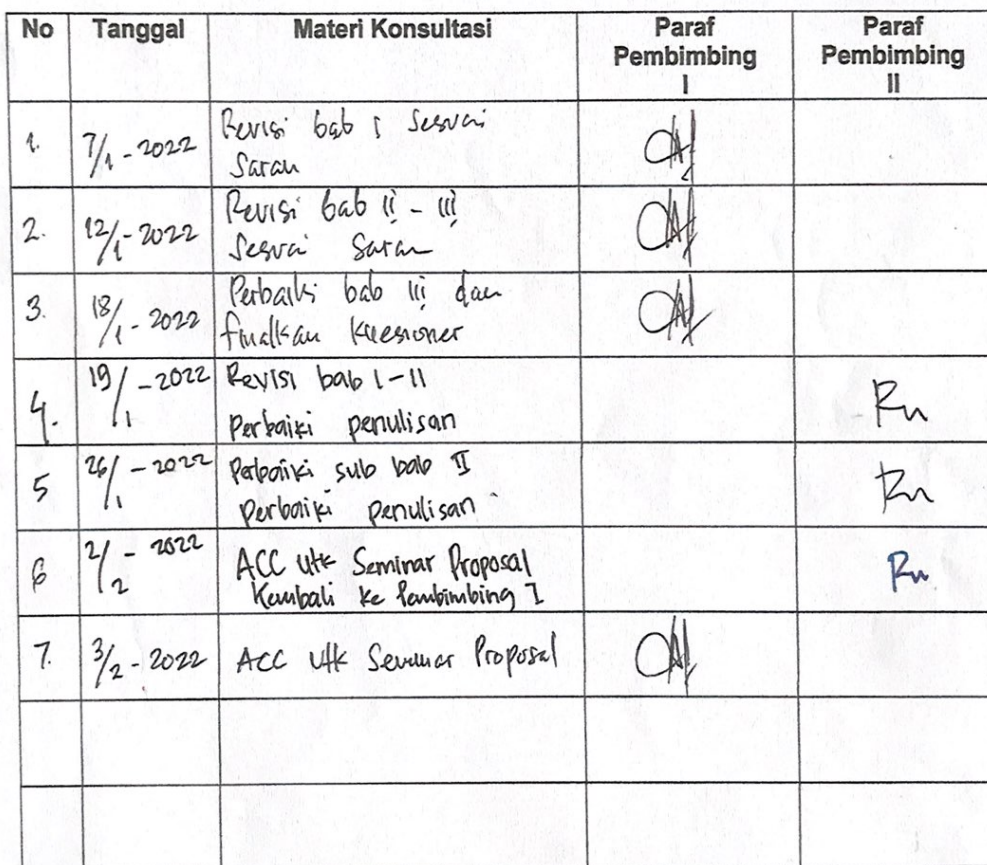 No Tanggal Materi Konsultasi Paraf Pembimbing I Paraf Pembimbing II
1. 7/1 - 2022 Revisi bab I Sesuai
Saran
2. 12/1 - 2022 Revisi bab II - III
Sesuai Saran
3. 18/1 - 2022 Perbaiki bab III dan
finalkan kuesioner
4. 19/1 - 2022 Revisi bab I - II
Perbaiki penulisan Rn
5 26/1 - 2022 Perbaiki sub bab II
perbaiki penulisan Rn
6 2/2 - 2022 ACC utk Seminar Proposal
Kembali ke Pembimbing I Rn
7. 3/2 - 2022 ACC utk Seminar Proposal